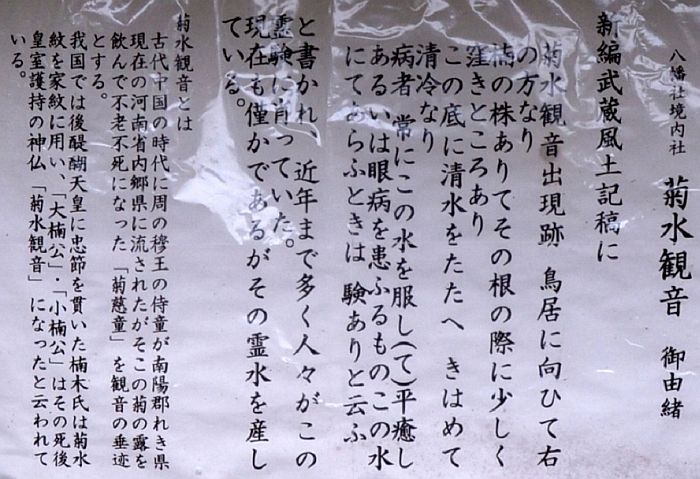 八幡社境内社 菊水観音 御由緒
新編武蔵風土記稿に
菊水観音出現跡 鳥居に向ひて右
の方なり
楠の株ありてその根の際に少しく
窪きところあり
この底に清水をたたへ きはめて
清冷なり
病者 常にこの水を服し(て)平癒し
あるいは眼病を患ふるものこの水
にてあらふときは 験ありと云ふ
と書かれ、近年まで多く人々がこの
霊験に肖っていた。
現在も僅かであるがその霊水を産し
ている。
菊水観音とは
古代中国の時代に周の穆王の侍童が南陽郡れき県
現在の河南省内郷県に流されたがそこの菊の露を
飲んで不老不死になった「菊慈童」を観音の垂迹
とする。
我国では後醍醐天皇に忠節を貫いた楠木氏は菊水
紋を家紋に用い、「大楠公」・「小楠公」はその死後
皇室護持の神仏「菊水観音」になったと云われて
いる。